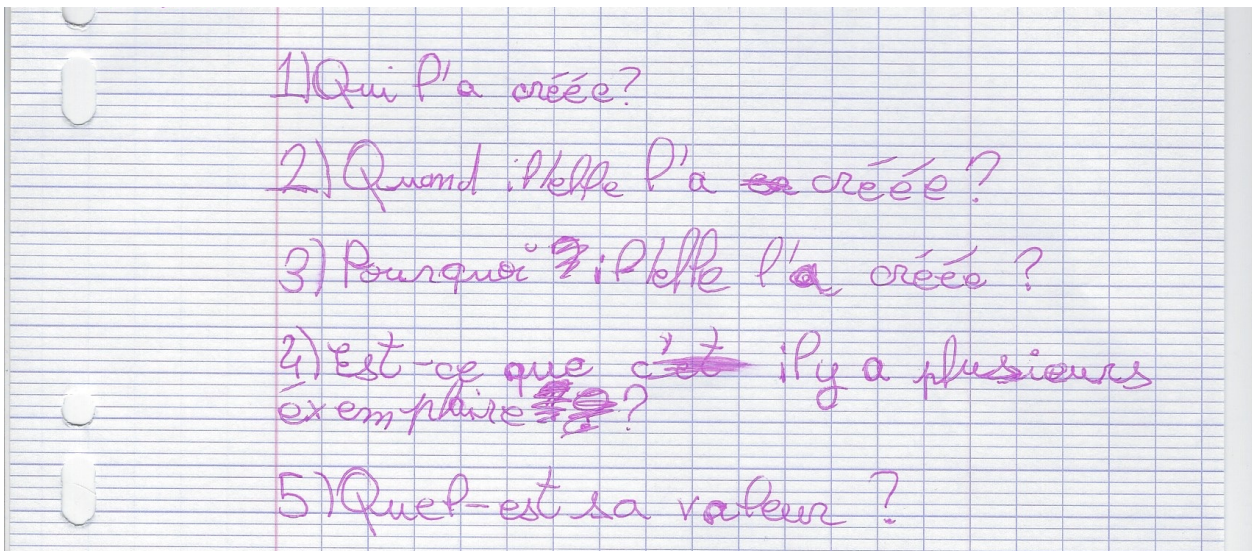 1) Qui l'a créée?
2) Quand il/elle l'a créée?
3) Pourquoi il/elle l'a créée?
4) Est-ce que il y a plusieurs
éxemplaire?
5) Quel-est sa valeur?